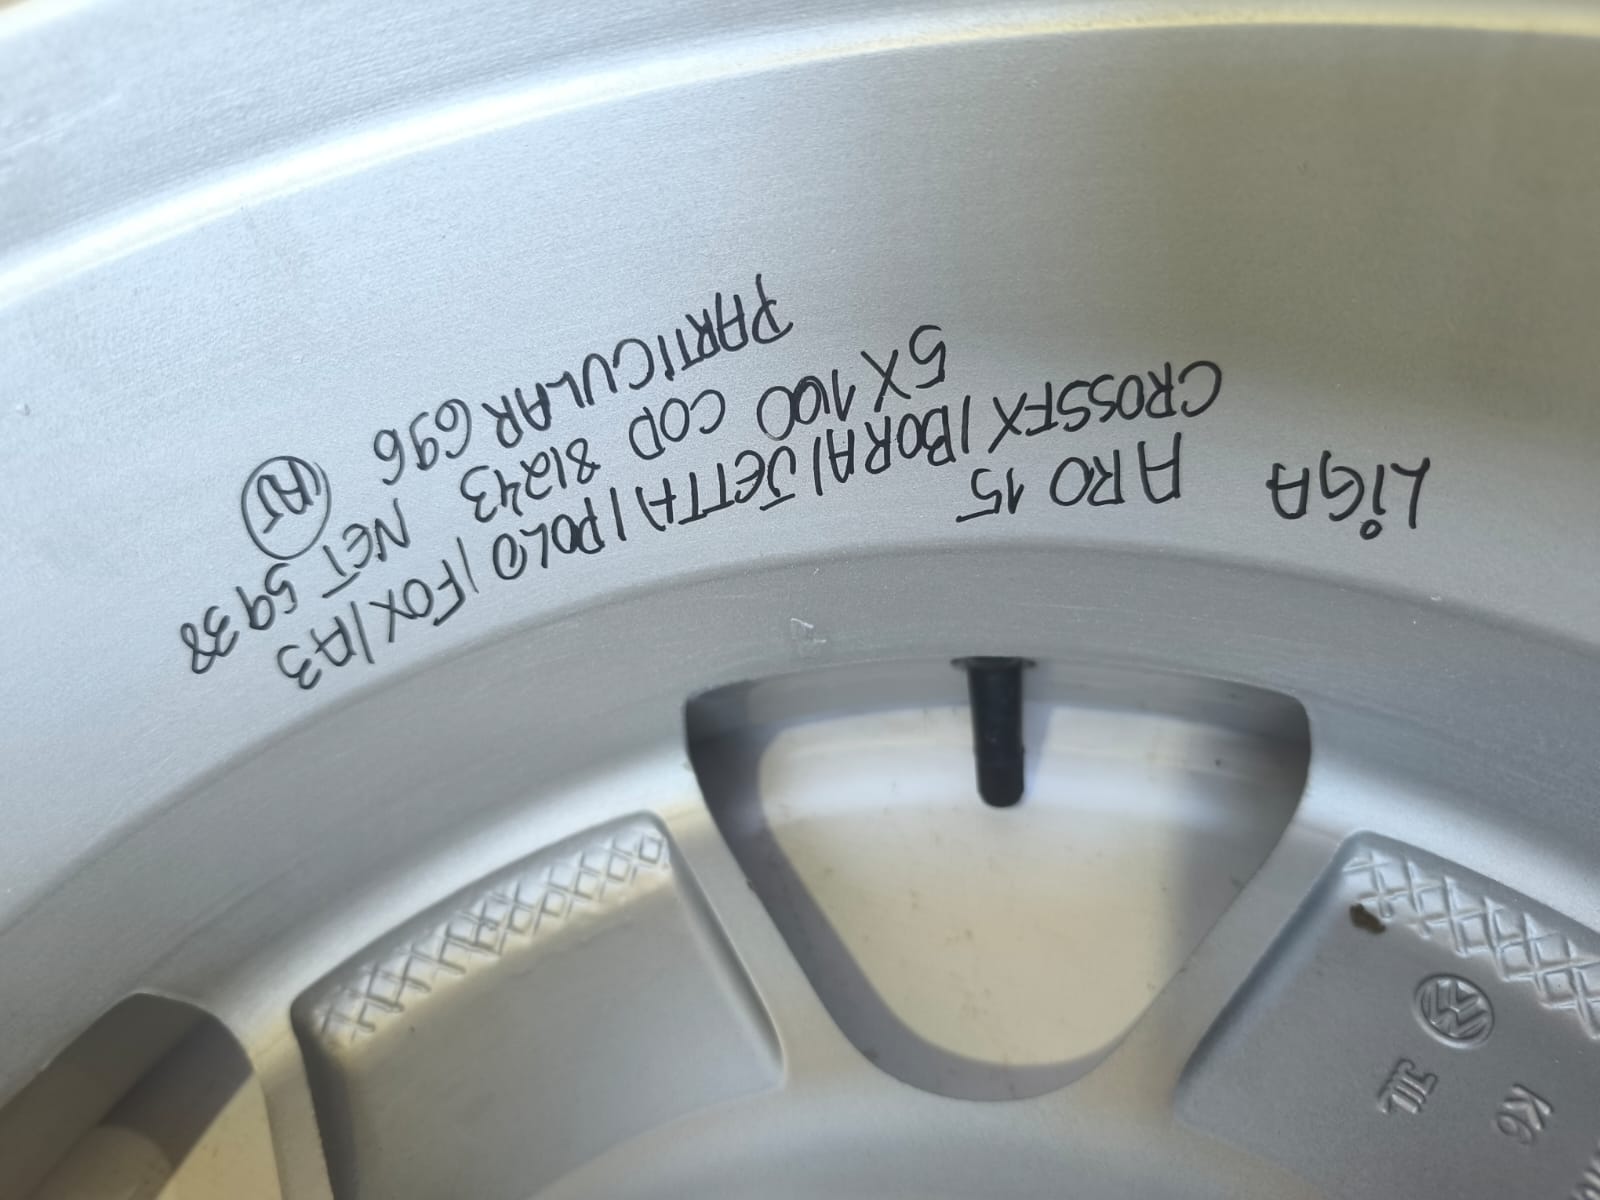 LiGA ARO 15
CROSSFX/BORA/JETTA/POLO/FOX/A3
5X100 COD 81243 NET 5938
PARTICULAR 696 AJ
VW
JIL
K6